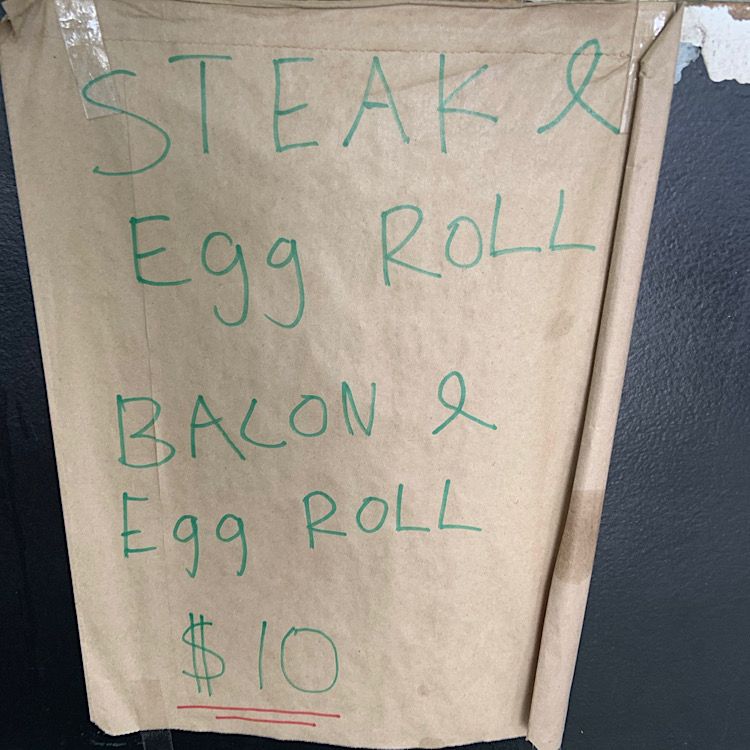 STEAK &
Egg ROLL
BACON &
Egg ROLL
$10